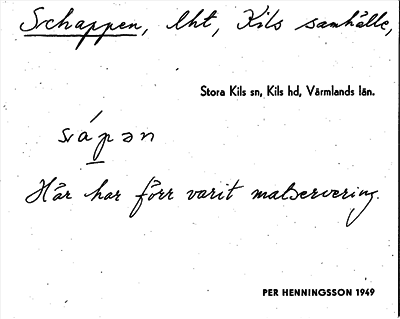 Schappen, lht, Kils samhälle,
Stora Kils sn, Kils hd, Värmlands län.
sʃápən
Här har förr varit matservering.
PER HENNINGSSON 1949